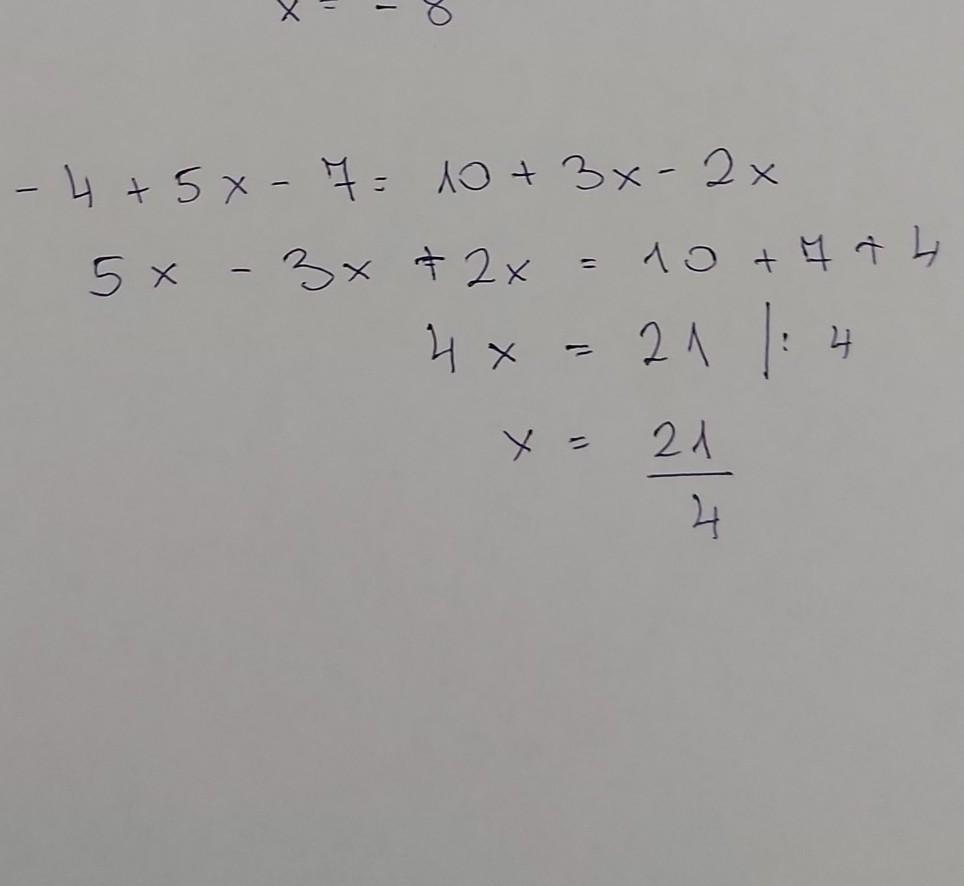 x = - 8
- 4 + 5x - 7 = 10 + 3x - 2x
5x - 3x + 2x = 10 + 7 + 4
4x = 21 |: 4
x = 21/4